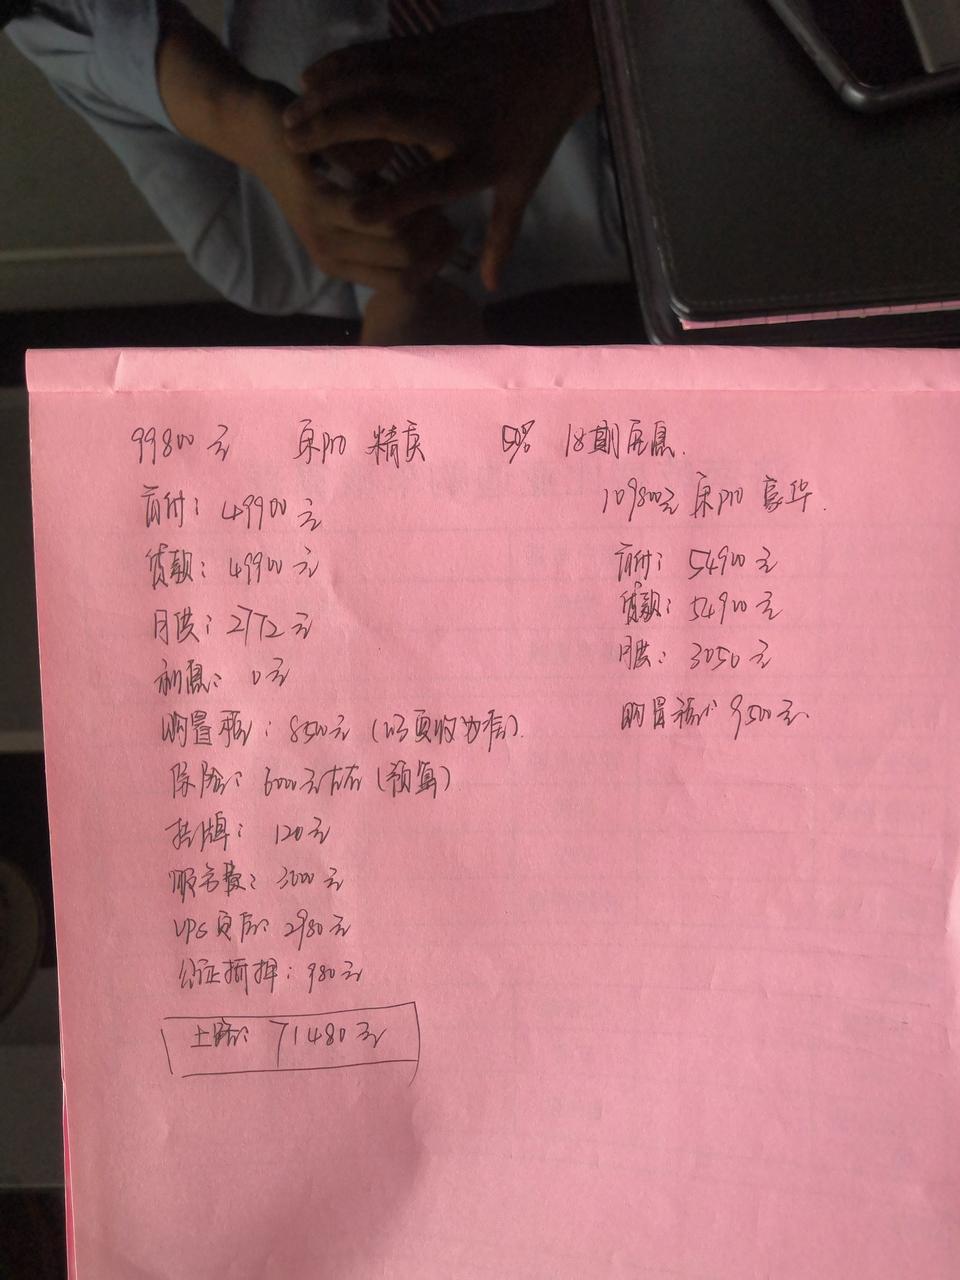 99800元 宋pro 精英 50% 18期免息.
首付：49900元
贷款：49900元
月供：2772元
利息：0元
购置税：8500元（以实收为准）.
保险：6000元左右（预算）
挂牌：120元
服务费：3000元
GPS 2980元
公证抵押：980元
上路：71480元
109800元 宋pro 豪华.
首付：54900元
贷款：54900元
月供：3050元
购置税：9500元.